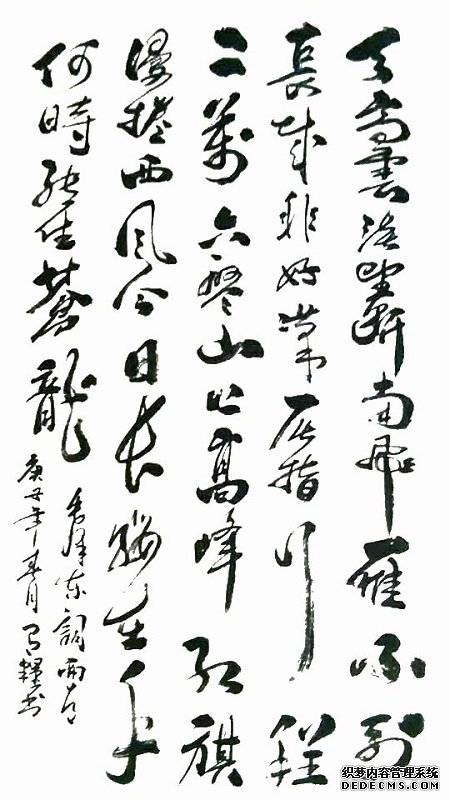 天高雲淡望斷南飛雁不到
長城非好漢屈指行程
二萬六盤山上高峰紅旗
漫捲西風今日长纓在手
何時縛住蒼龍
毛泽东詞兩首
丑年春月書
织梦内容管理系统
DEDECMS.COM